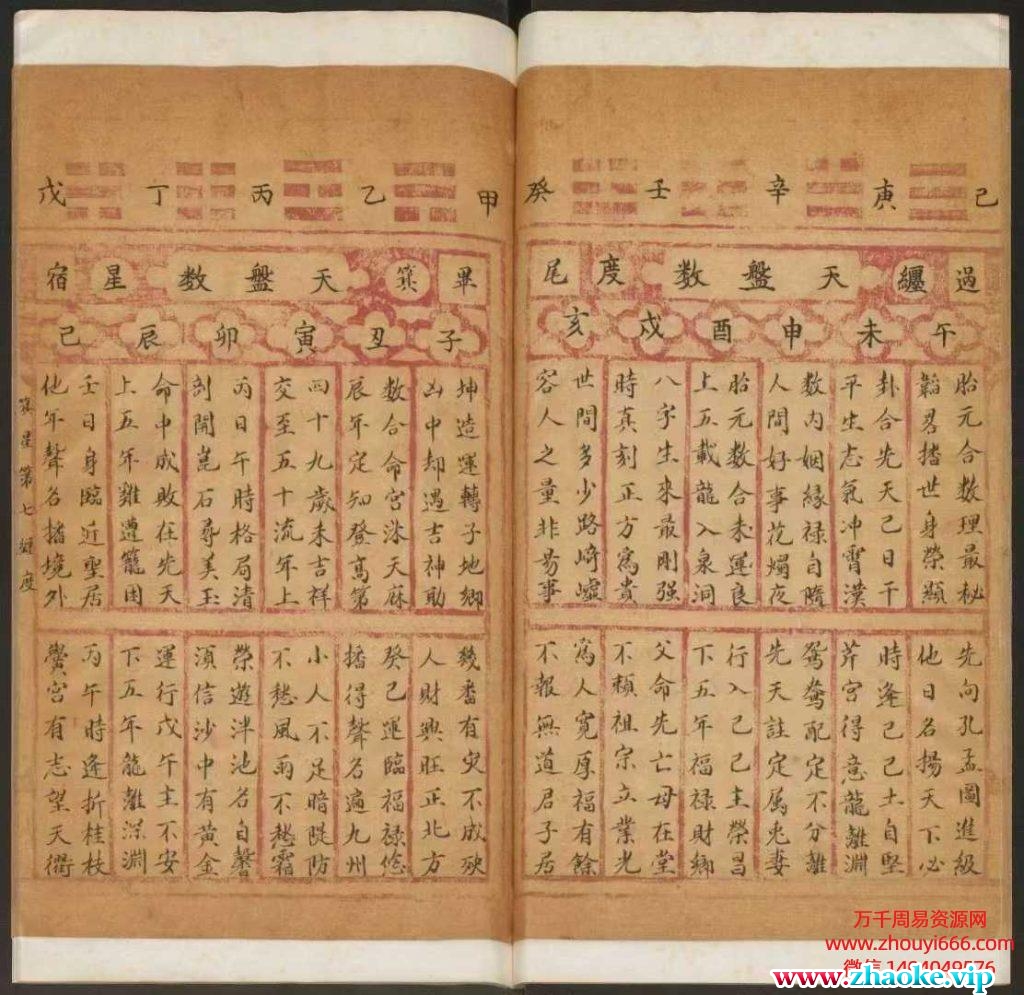 己 庚 辛 壬 癸
過 纏 天盤数 度 尾
午 未 申 酉 戌 亥
胎元合数理最秘
韜畧播世身榮顯
卦合先天己日干
平生志氣冲霄漢
数内姻緣禄自隨
人間好事花燭夜
胎元数合未運良
上五載龍入泉洞
八字生來最剛强
時真刻正方爲貴
世間多少路崎嶇
容人之量非昜事
先向孔孟圖進級
他日名揚天下必
時逢己己土自堅
芹宮得意龍離淵
鴛鴦配定不分離
先天註定属兎妻
行入己己主榮昌
下五年福禄財鄉
父命先亡母在堂
不頼祖宗立業光
爲人寛厚福有餘
不報無道君子居
甲 乙 丙 丁 戊
畢 箕 天盤数 星 宿
子 丑 寅 卯 辰 己
坤造運轉子地鄉
凶中却遇吉神助
数合命宮洙天麻
辰年定知登髙第
四十九歲未吉祥
交至五十流年上
丙日午時格局清
剖開崑石尋美玉
命中成敗在先天
上五年雞遭籠困
壬日身臨近聖居
他年聲名播境外
幾番有灾不成殃
人財興旺正北方
癸己運臨福禄悠
播得聲名遍九州
小人不足暗隄防
不愁風雨不愁霜
榮遊泮池名自馨
湏信沙中有黃金
運行戊午主不安
下五年龍離深淵
丙午時逢折桂枝
黌宮有志望天衢
箕星第七纏度
万千周易资源网
www.zhouyi666.com
微信1494049576
www.zhaoke.vip